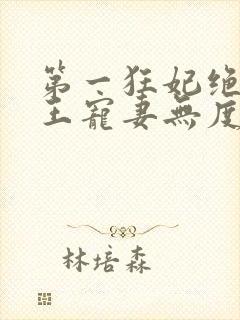 第一狂妃绝
王寵妻無度
林培森